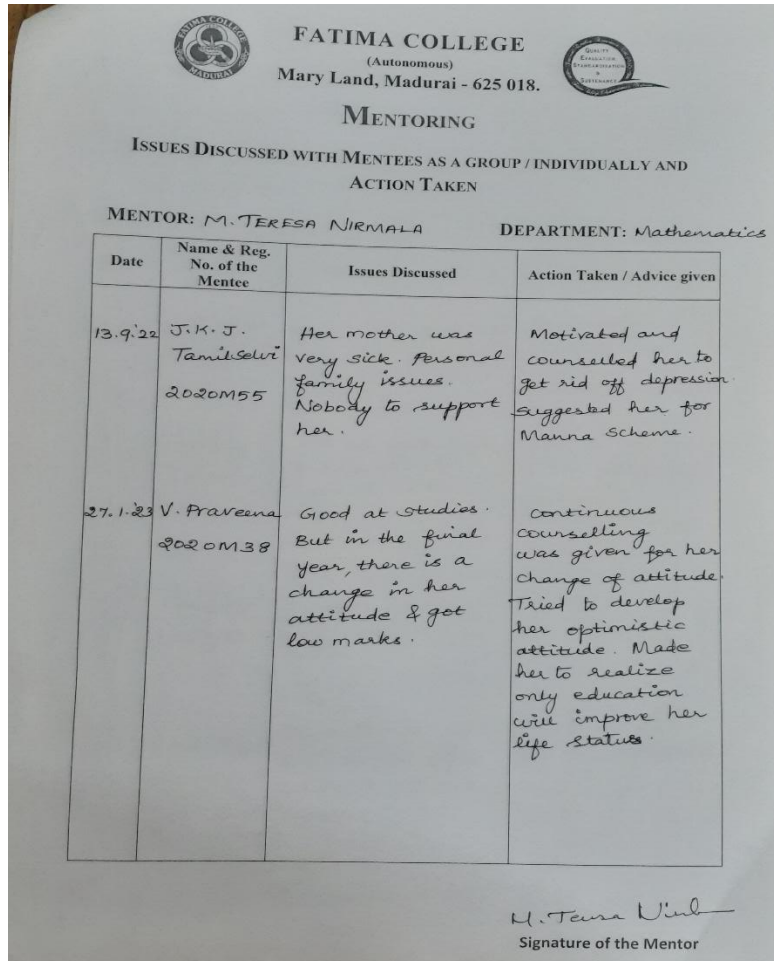 FATIMA COLLEGE
MADURAI
FATIMA COLLEGE
(Autonomous)
Mary Land, Madurai - 625 018.
QUALITY
EVALUATION
STANDARDIZATION
&
SUSTENANCE
MENTORING
ISSUES DISCUSSED WITH MENTEES AS A GROUP / INDIVIDUALLY AND
ACTION TAKEN
MENTOR: M. TERESA NIRMALA
DEPARTMENT: Mathematics
Date
Name & Reg.
No. of the
Mentee
Issues Discussed
Action Taken / Advice given
13.9.'22
J.K.J.
Tamilselvi
2020M55
Her mother was
very sick. Personal
family issues.
Nobody to support
her.
Motivated and
counselled her to
get rid off depression.
Suggested her for
Manna Scheme.
27.1.'23
V. Praveena
2020M38
Good at studies.
But in the final
year, there is a
change in her
attitude & got
low marks.
Continuous
counselling
was given for her
change of attitude.
Tried to develop
her optimistic
attitude. Made
her to realize
only education
will improve her
life status.
M. Teresa
Signature of the Mentor